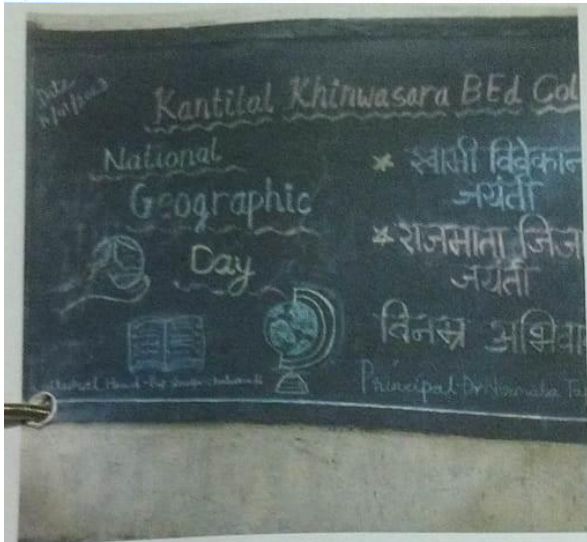 Date
Kantilal Khinwasara BEd Col
National
Geographic
Day
* स्वामी विवेकान
जयंती
* राजमाता जिजा
जयंती
विनम्र अभिवा
Principal Dr